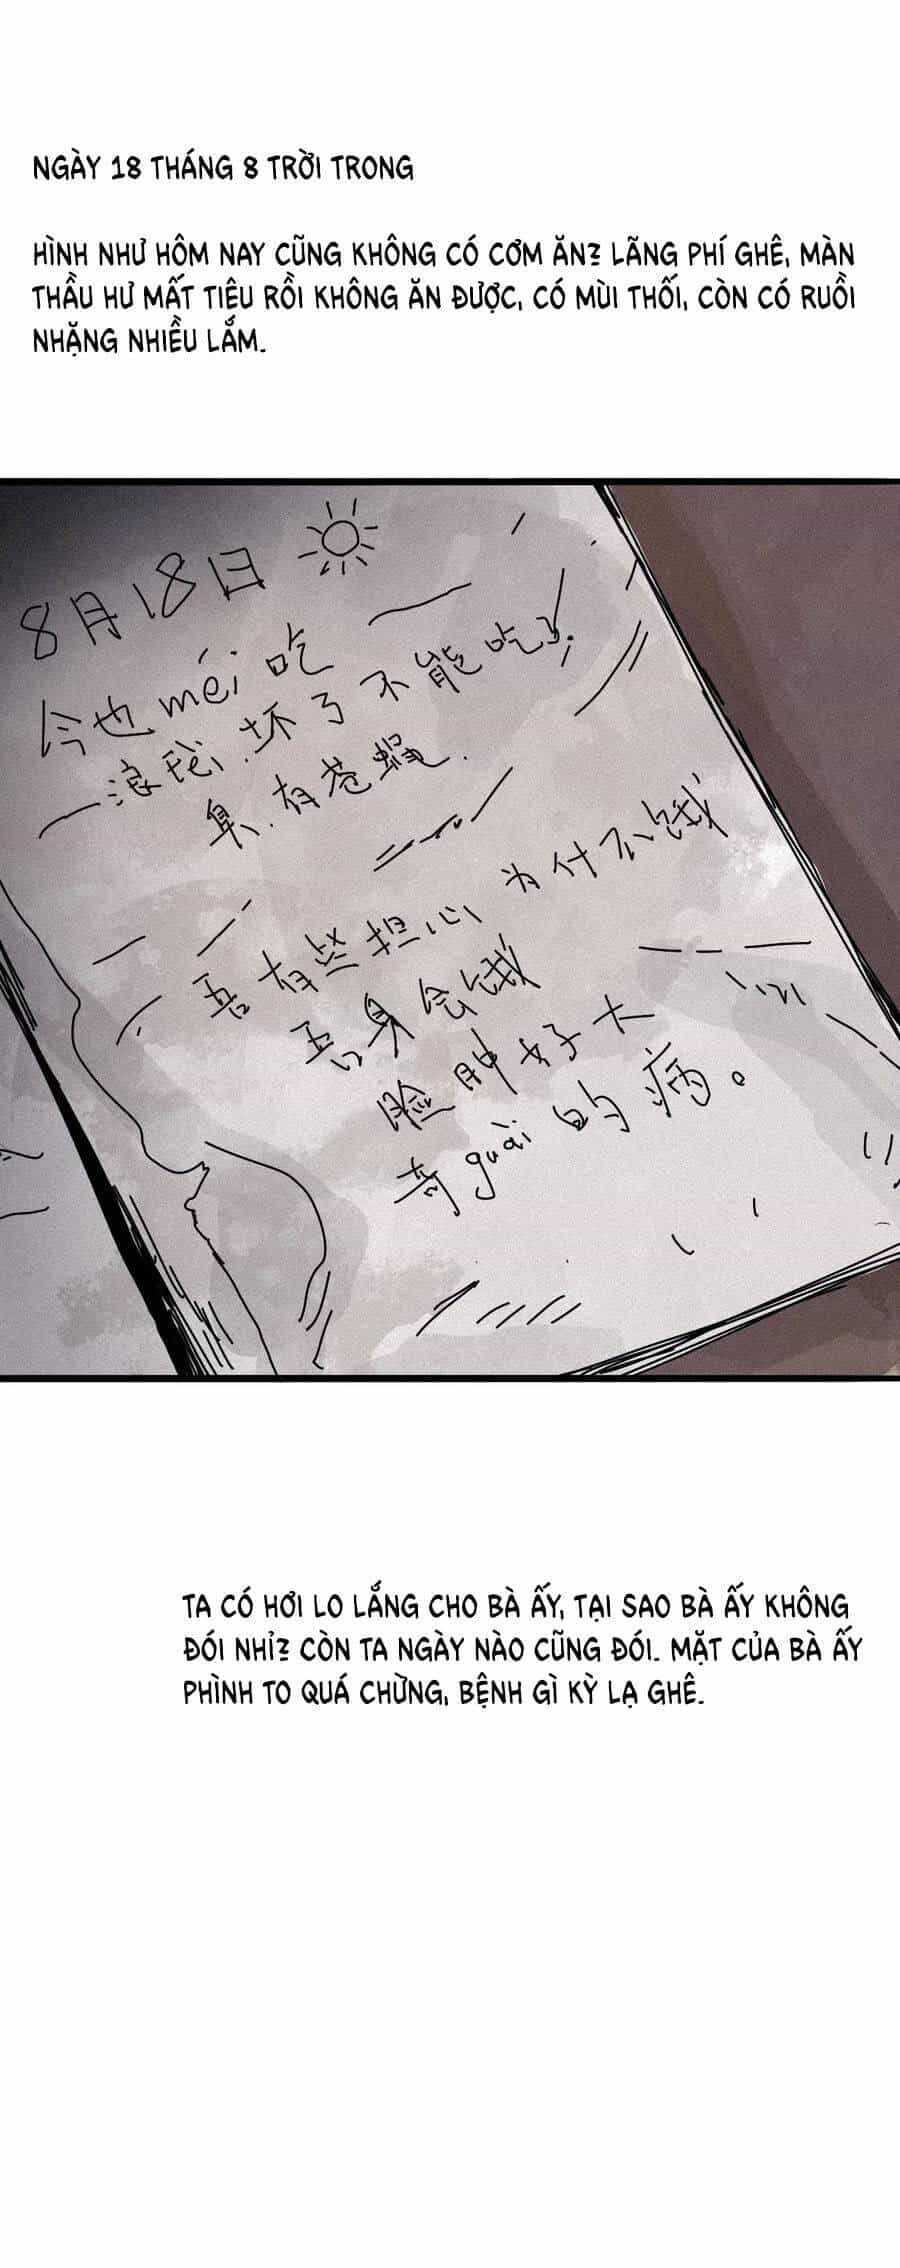 NGÀY 18 THÁNG 8 TRỜI TRONG
HÌNH NHƯ HÔM NAY CŨNG KHÔNG CÓ CƠM ĂN? LÃNG PHÍ GHÊ, MÀN
THẦU HƯ MẤT TIÊU RỒI KHÔNG ĂN ĐƯỢC, CÓ MÙI THỐI, CÒN CÓ RUỒI
NHẶNG NHIỀU LẮM.
8月18日
今也méi吃
浪 坏了不能吃了
臭.有苍蝇.
吾有些担心 为什不饿
吾身会饿
脸肿好大
奇guài的病。
TA CÓ HƠI LO LẮNG CHO BÀ ẤY, TẠI SAO BÀ ẤY KHÔNG
ĐÓI NHỈ? CÒN TA NGÀY NÀO CŨNG ĐÓI. MẶT CỦA BÀ ẤY
PHÌNH TO QUÁ CHỪNG, BỆNH GÌ KỲ LẠ GHÊ.